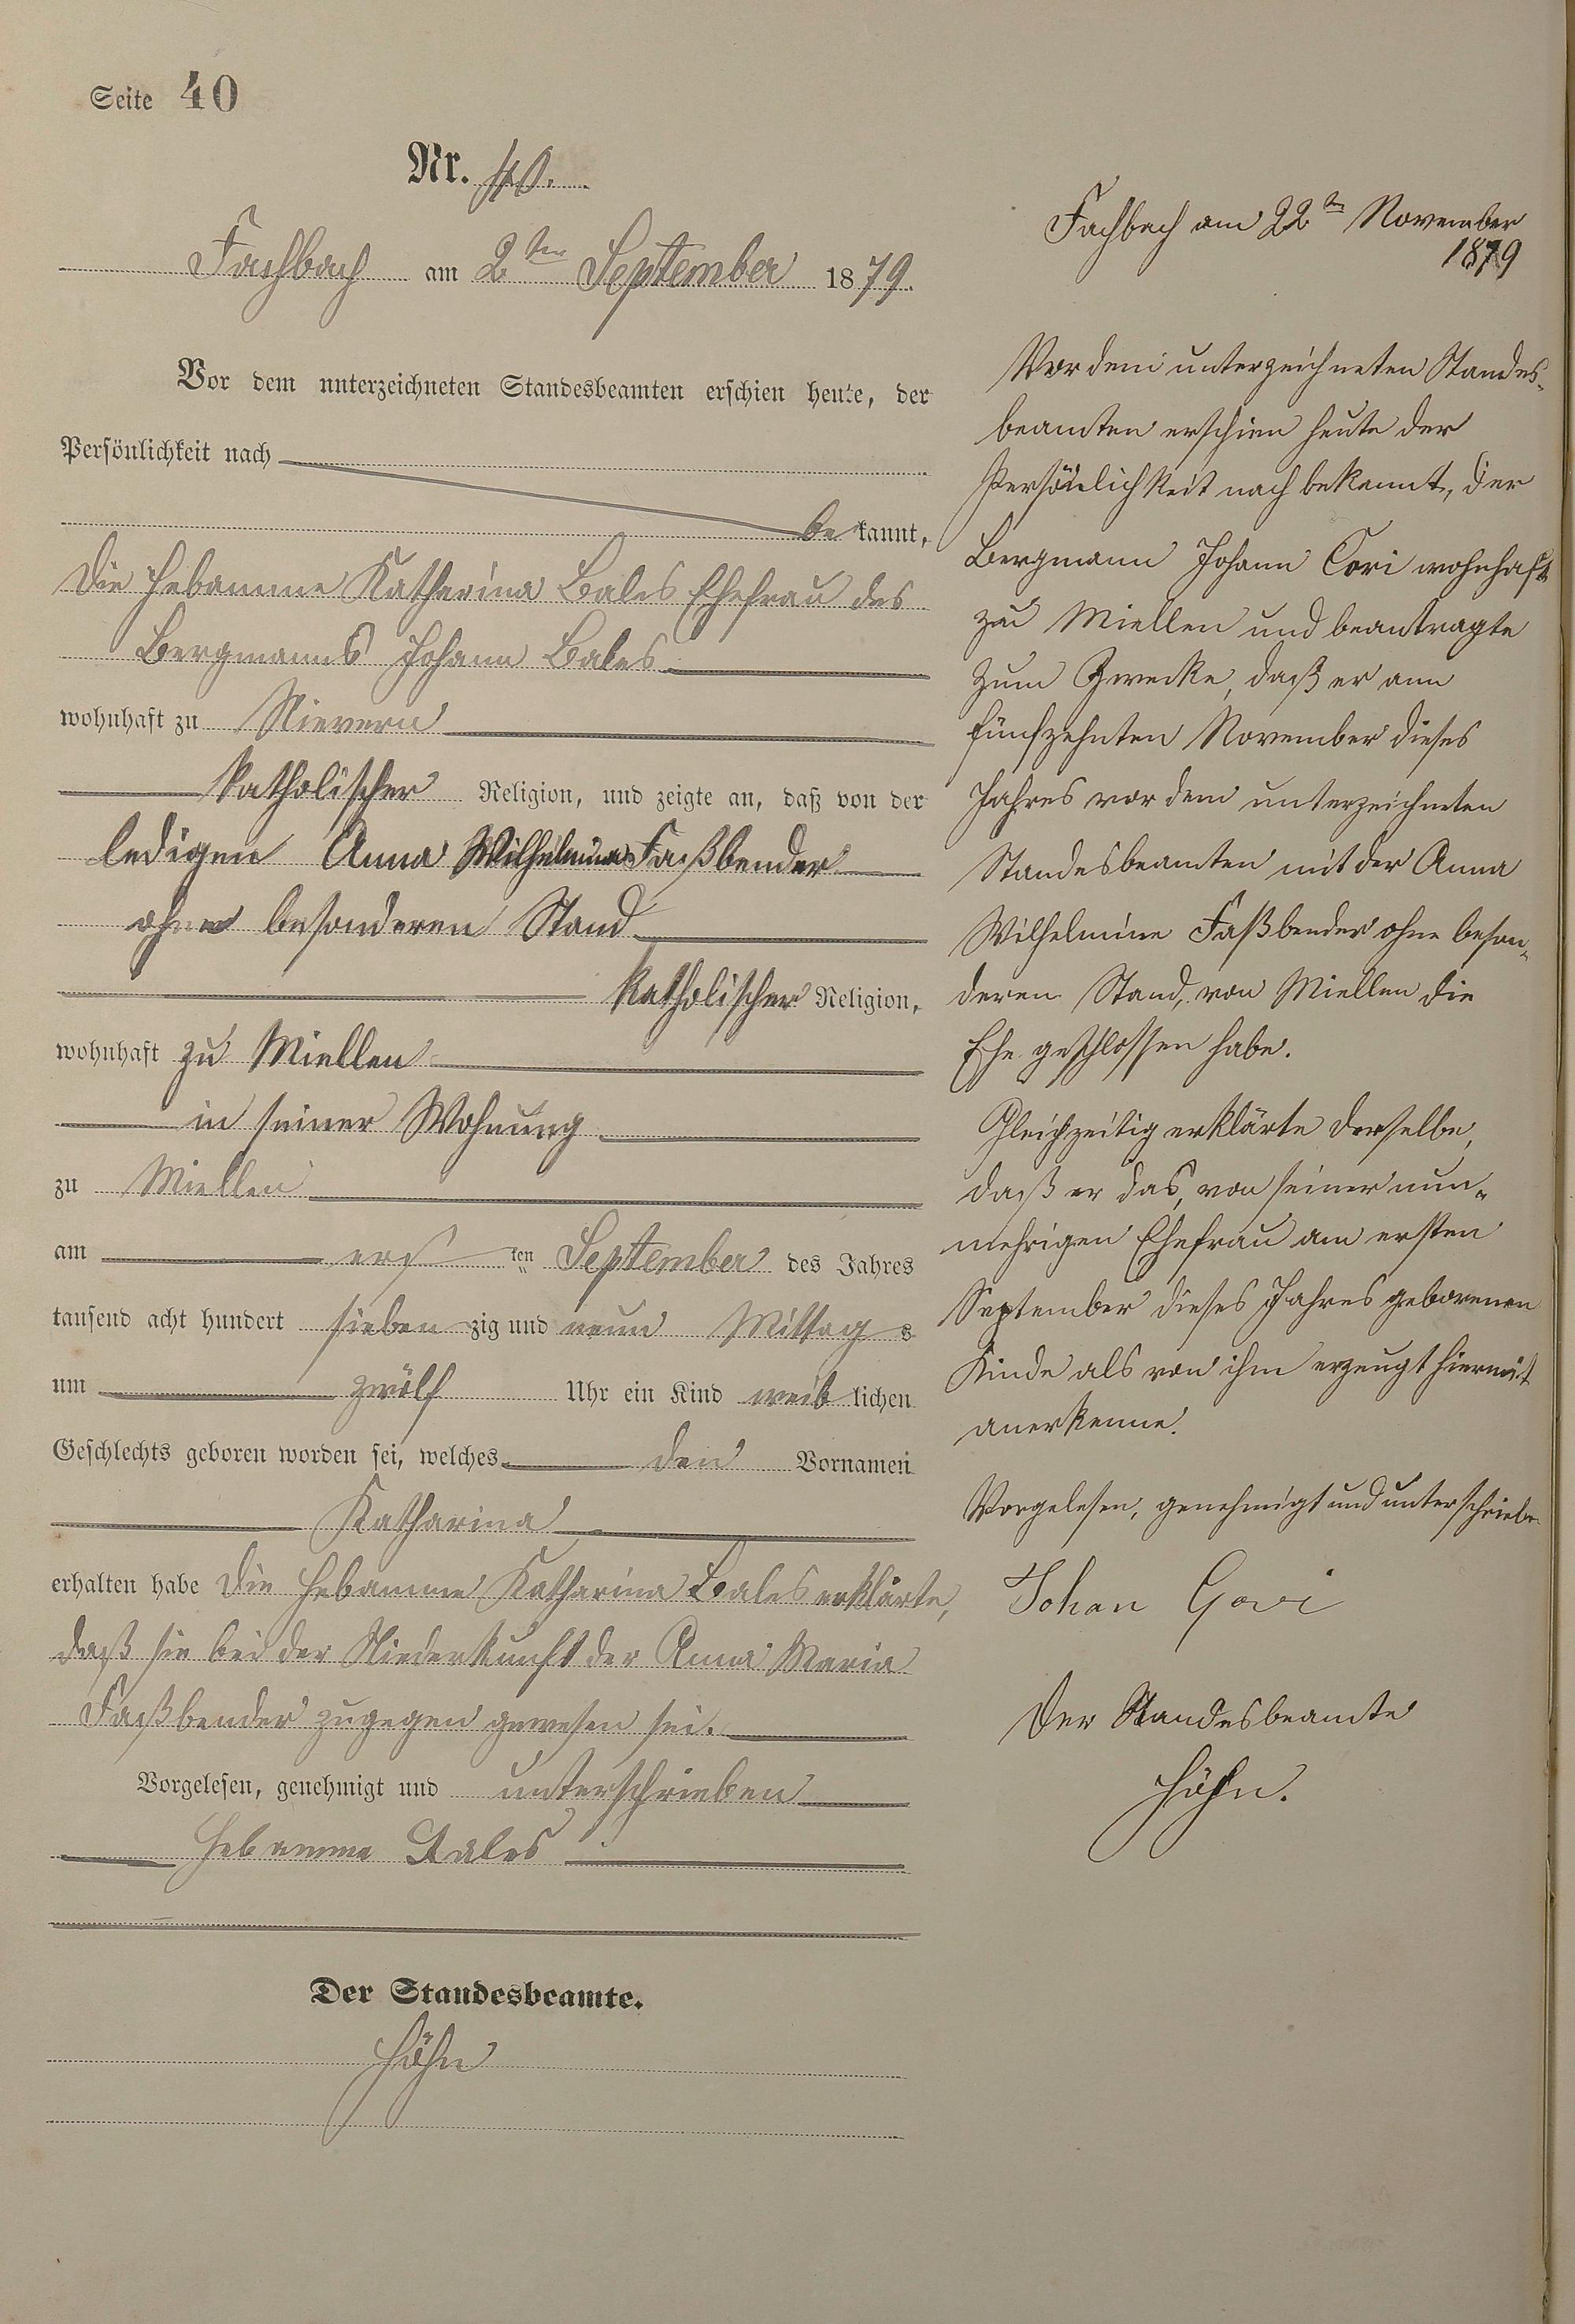 Seite 40
Nr. 40.
Fachbach am 2ten September 1879.
Vor dem unterzeichneten Standesbeamten erschien heute, der
Persönlichkeit nach
be kannt,
die Hebamme Katharina Bales Ehefrau des
Bergmanns Johann Bales
wohnhaft zu Nievern
katholischer Religion, und zeigte an, daß von der
ledigen Anna Wilhelmina Faßbender
ohne besonderen Stand
katholischer Religion,
wohnhaft zu Miellen
in seiner Wohnung
zu Miellen
am ersten September des Jahres
tausend acht hundert sieben zig und neun Mittag s
um zwölf Uhr ein Kind weib lichen
Geschlechts geboren worden sei, welches den Vornamen
Katharina
erhalten habe die Hebamme Katharina Bales erklärte,
daß sie bei der Niederkunft der Anna Maria
Faßbender zugegen gewesen sei.
Vorgelesen, genehmigt und unterschrieben
Hebamme Bales
Der Standesbeamte.
Höhn
Fachbach am 22ten November
1879
Vor dem unterzeichneten Standes-
beamten erschien heute der
Persönlichkeit nach bekannt, der
Bergmann Johann Cori wohnhaft
zu Miellen und beantragte
zum Zwecke, daß er am
fünfzehnten November dieses
Jahres vor dem unterzeichneten
Standesbeamten mit der Anna
Wilhelmine Faßbender ohne beson-
deren Stand, von Miellen die
Ehe geschlossen habe.
Gleichzeitig erklärte derselbe,
daß er das, von seiner nun-
mehrigen Ehefrau am ersten
September dieses Jahres geborenen
Kinde als von ihm erzeugt hiermit
anerkenne.
Vorgelesen, genehmigt und unterschrieben
Johan Gori
Der Standesbeamte
Höhn.